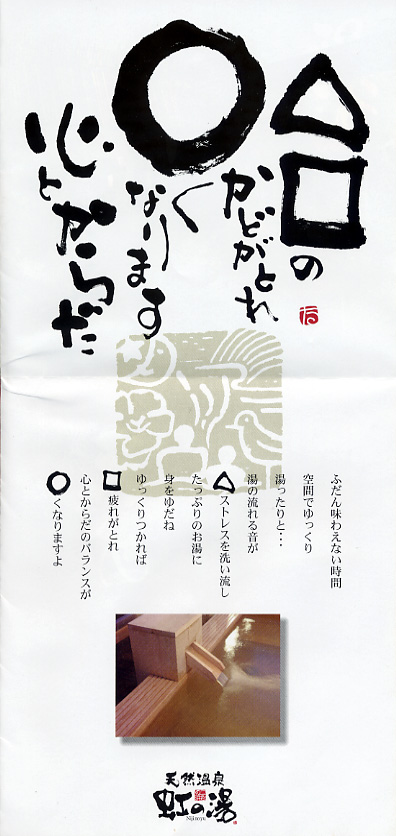 △□の
かどがとれ
○く
なります
心と
からだ
ふだん味わえない時間
空間でゆっくり
湯ったりと・・・
湯の流れる音が
△ストレスを洗い流し
たっぷりのお湯に
身をゆだね
ゆっくりつかれば
□疲れがとれ
心とからだのバランスが
○くなりますよ
天然温泉
虹の湯
Nijinoyu